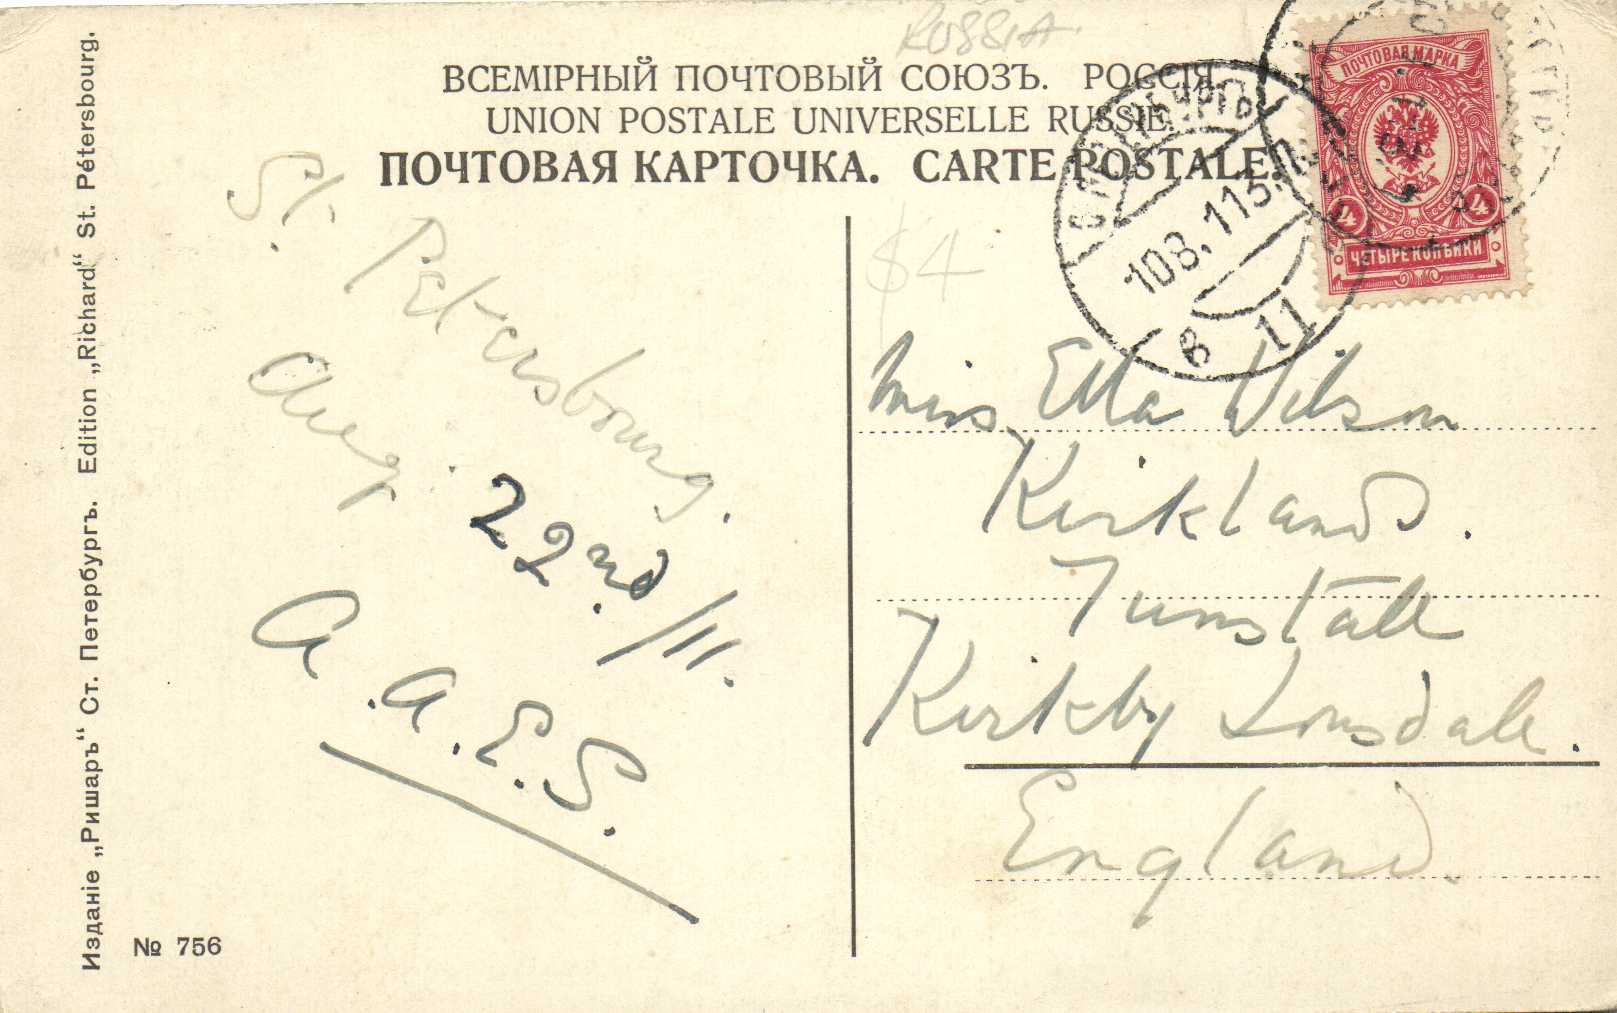 RUSSIA.
ВСЕМІРНЫЙ ПОЧТОВЫЙ СОЮЗЪ. РОССІЯ.
UNION POSTALE UNIVERSELLE RUSSIE.
ПОЧТОВАЯ КАРТОЧКА. CARTE POSTALE.
ПОЧТОВАЯ МАРКА
4 4
ЧЕТЫРЕ КОПѢЙКИ
10 8.11
8 11
$4
St. Petersbourg.
Aug. 22nd/11.
A.A.E.S.
Miss Ella Wilson
Kirklands.
Tunstall
Kirkby Lonsdale.
England.
Изданіе „Ришаръ“ Ст. Петербургъ. Edition „Richard“ St. Pétersbourg.
№ 756